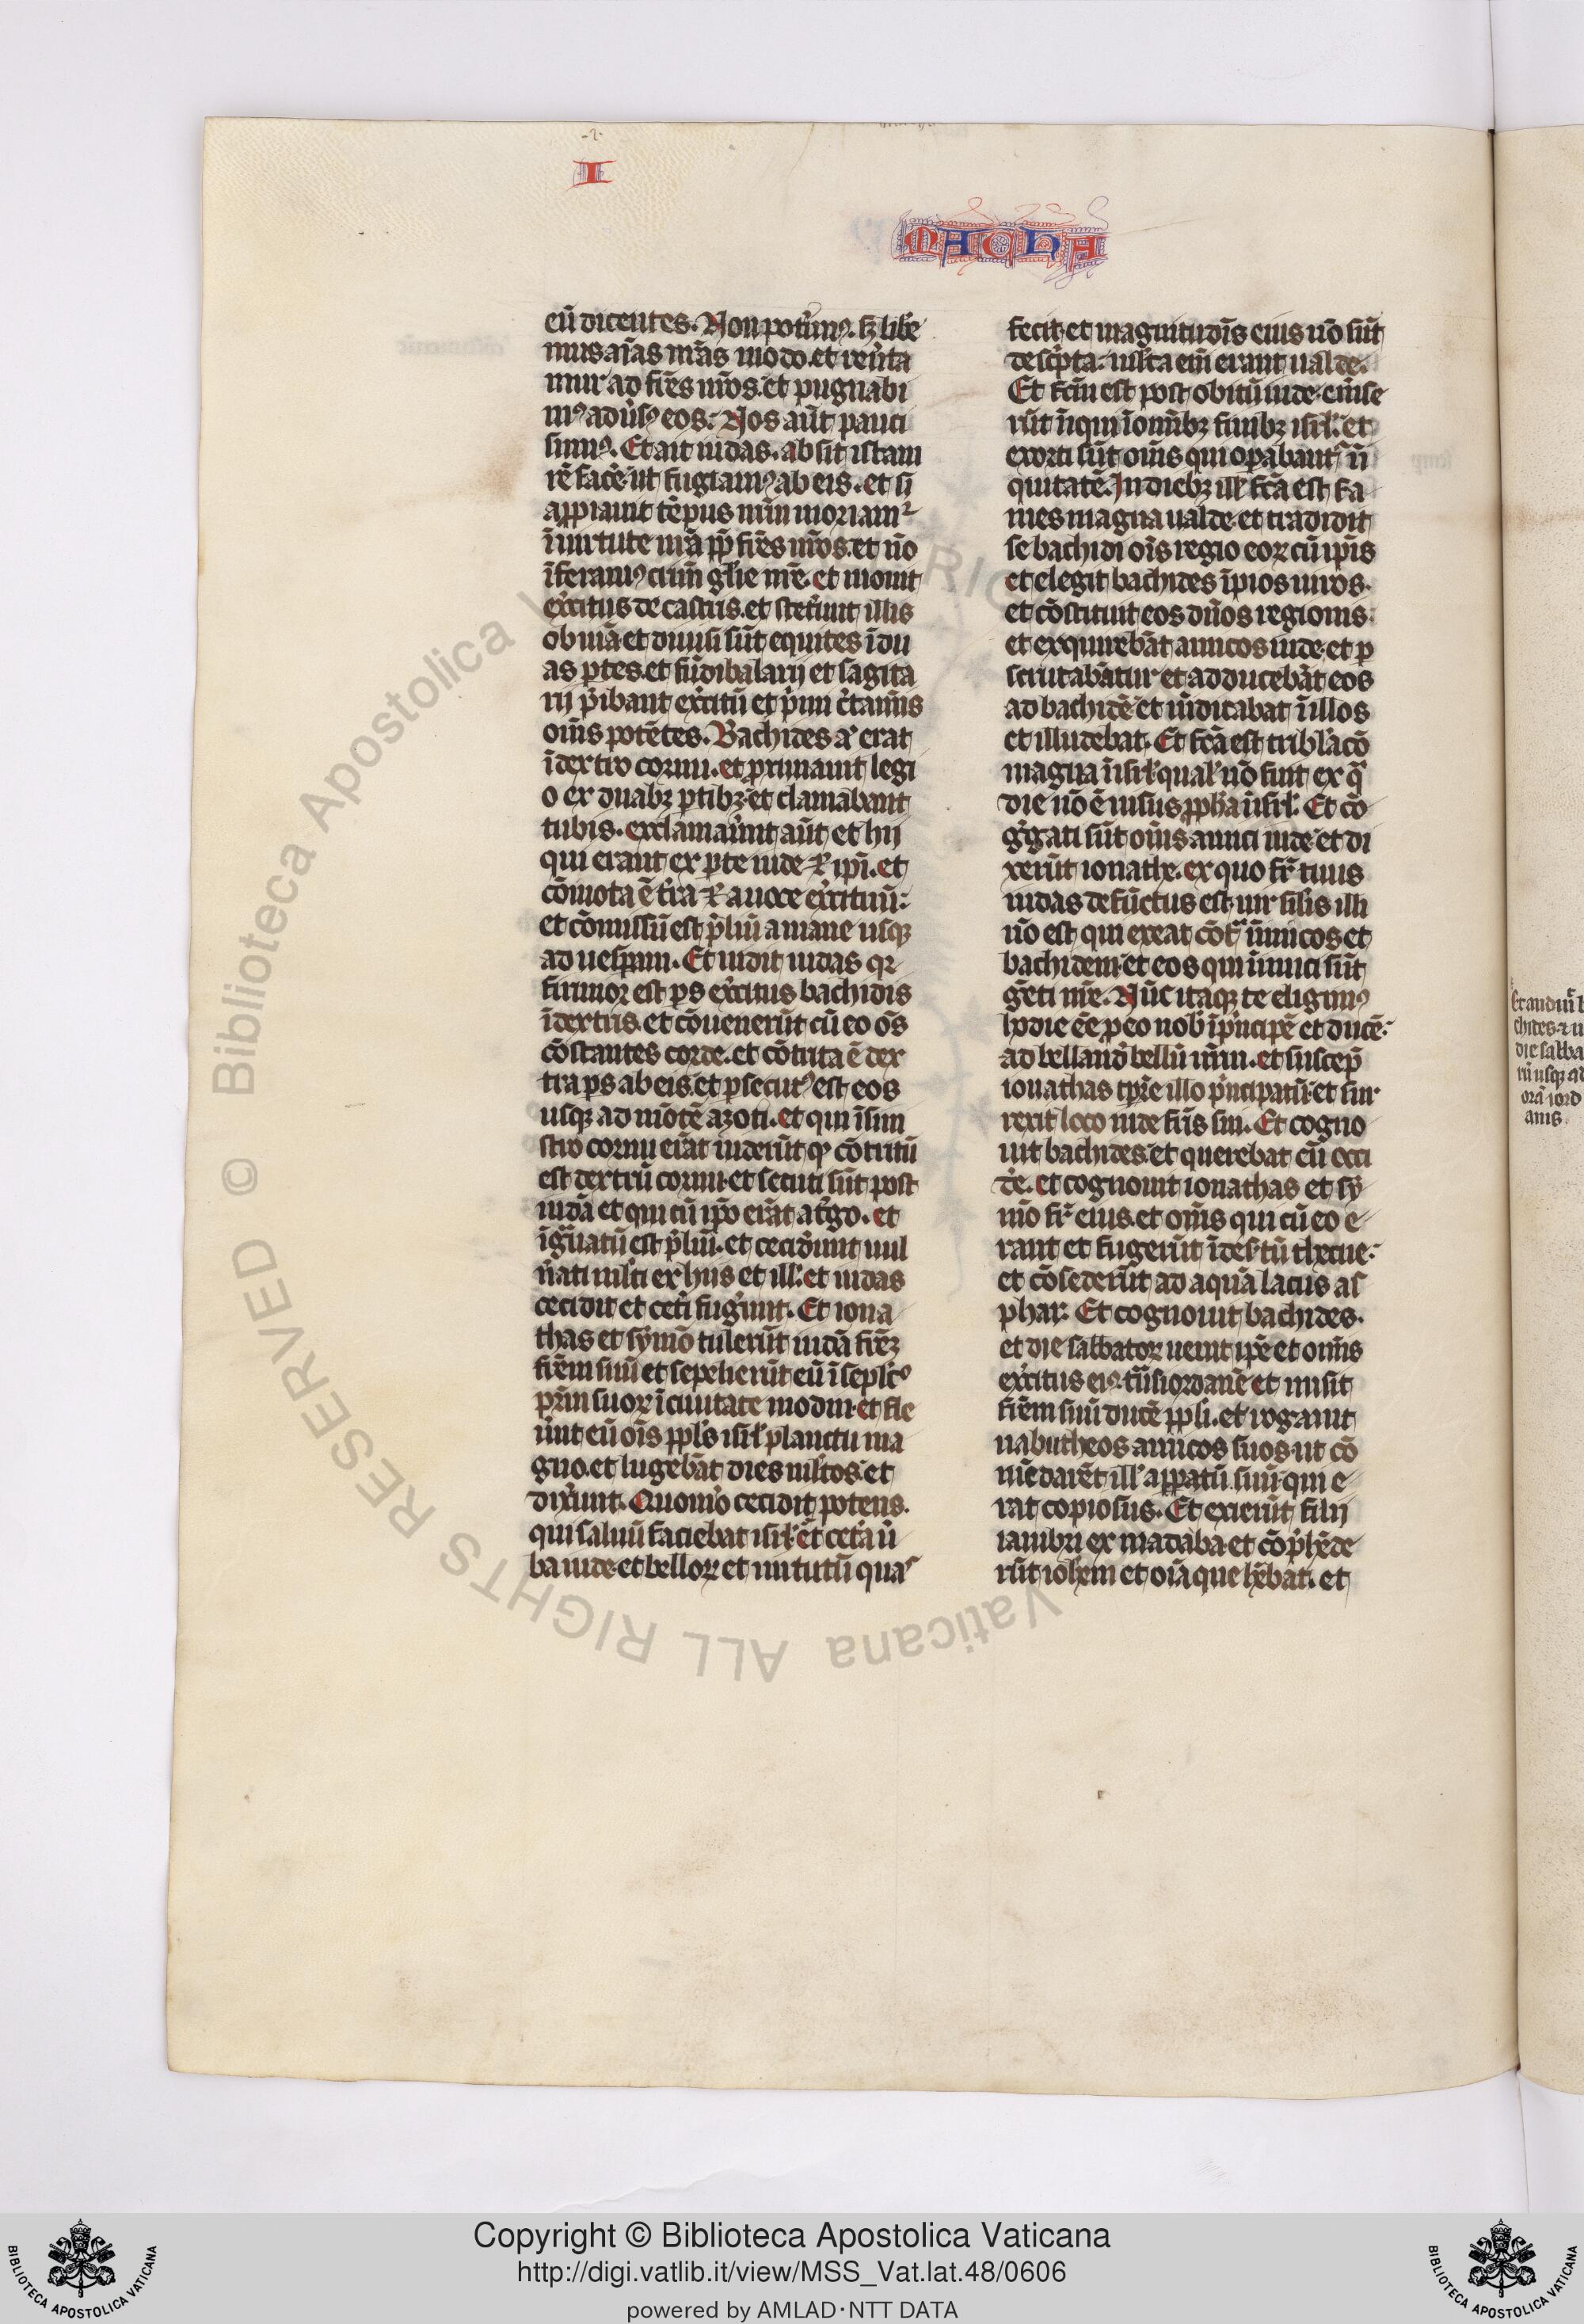 I
MACHA
eū dicentes. Non pot̾imꝰ. sꝫ libe
mus aīas nr̄as modo. et reūta
mur ad fr̄es nr̄os. et pugnabi
mꝰ adūsꝰ eos. Nos aūt pauci
sumꝰ. Et ait iudas. absit istam
rē facē. ut fugiamꝰ ab eis. et si
appiauit tēpus nrm̄ moriam̾
ī uirtute nr̄a ꝓp̄ fr̄es nr̄os. et nō
īferamꝰ crim̄ gl̄ie nr̄e. et mouit
exc̄itus de castris. et stet̾unt illis
obuiā et diuisi sūt equites ī du
as ꝑtes. et fūdibalarij et sagita
rij p̄ibant exc̄itū et p̄mi c̄tamīs
oīns potētes. Bachides aͣ erat
ī dextro cornu. et ꝓximauit legi
o ex duabꝫ ꝑtibꝫ. et clamabant
tubis. exclamaūnt aūt et hij
qui erant ex ꝑte iude ⁊ ip̄i. et
cōmota ē t̄ra ⁊ a uoce exc̄ituū.
et cōmissū est p̄liū a mane usqꝫ
ad uesꝑam. Et uidit iudas qꝛ
firmior est ꝑs exc̄itus bachidis
ī dextris. et cōuenerūt cū eo oēs
cōstantes corde. et cōtrita ē dex
tra ꝑs ab eis. et ꝑsecutꝰ est eos
usqꝫ ad mōtē azoti. et qui ī sini
stro cornu erāt uiderūt qꝫ cōtritū
est dextrū cornu. et secuti sūt post
iudā et qui cū ip̄o erāt a t̾go. et
īg̾uatū est p̄liū. et ceciderunt uul
n̄ati ml̄ti ex hiis et ill̾. et iudas
cecidit et cet̾i fug̾unt. Et iona
thas et symō tulerūt iudā fr̄eꝫ
fr̄em suū et sepelierūt eū ī sepl̄cꝰ
pr̄m suoꝝ ī ciuitate modin. et fle
ūnt eū oīs ppl̄s isrl̾ planctu ma
gno. et lugebāt dies ml̄tos. et
dix̾unt. Quomō cecidit potens.
qui saluū faciebat isrl̾. et cet̾a ū
ba iude. et belloꝝ et uirtutū quas
fecit. et magnitudīs eius nō sūt
descpta. ml̄ta eni̅ erant ualde.
Et fc̄m est post obitū iude. em̾se
rūt īiqui ī om̄ibꝫ finibꝫ isrl̾. et
exorti sūt oīns qui opabant̾ ī
quitatē. In diebꝫ ill̾ fc̄a est fa
mes magna ualde. et tradidit
se bachidi oīs regio eoꝝ cū ip̄is
et elegit bachides īpios uiros.
et cōstituit eos dn̄os regionis.
et exquirebāt amicos iude. et ꝑ
scrutabātur et adducebāt eos
ad bachidē et uīdicabat ī illos
et illudebat. Et fc̄a est tribl̾acō
magna ī isrl̾ qual̾ nō fuit ex qͣ
die nō ē uisus ꝓph̄a ī isrl̾. Et cō
g̾gati sūt oīns amici iude et di
xerūt ionathe. ex quo fr̄ tuus
iudas defūctus est uir sil̄is illi
nō est qui exeat cōtͣ īimicos et
bachidem. et eos qui īimici sūt
gēti nr̄e. Nūc itaqꝫ te eligimꝰ
hodie eē ꝓ eo nob̾ ī pncipē et ducē
ad bellandū bellū nr̄m. et suscep̄
ionathas tꝑe illo pncipatū. et sur
rexit loco iude fr̄is sui. Et cogno
uit bachides. et querebat eū occi
d̾e. et cognouit ionathas et sy
mō fr̄ eius. et om̄s qui cū eo e
rant et fugerūt ī desertū thecue.
et cōsederūt ad aquā lacus as
phar. Et cognouit bachides.
et die sabbatoꝝ uenit ipē et om̄is
exc̄itus eiꝰ. trn̄s iordanē et misit
fr̄em suū ducē ppl̄i. et rogauit
nabutheos amicos suos. ut cō
mēdarēt ill̾ apꝑatū suū. qui e
rat copiosus. Et exierūt filij
iambri ex madaba. et cōph̄ede
rūt ioh̄em et oīa que h̄ebat. et
die sabba
© Biblioteca Apostolica Vaticana ALL RIGHTS RESERVED
Copyright © Biblioteca Apostolica Vaticana
http://digi.vatlib.it/view/MSS_Vat.lat.48/0606
powered by AMLAD·NTT DATA
BIBLIOTECA APOSTOLICA VATICANA
BIBLIOTECA APOSTOLICA VATICANA